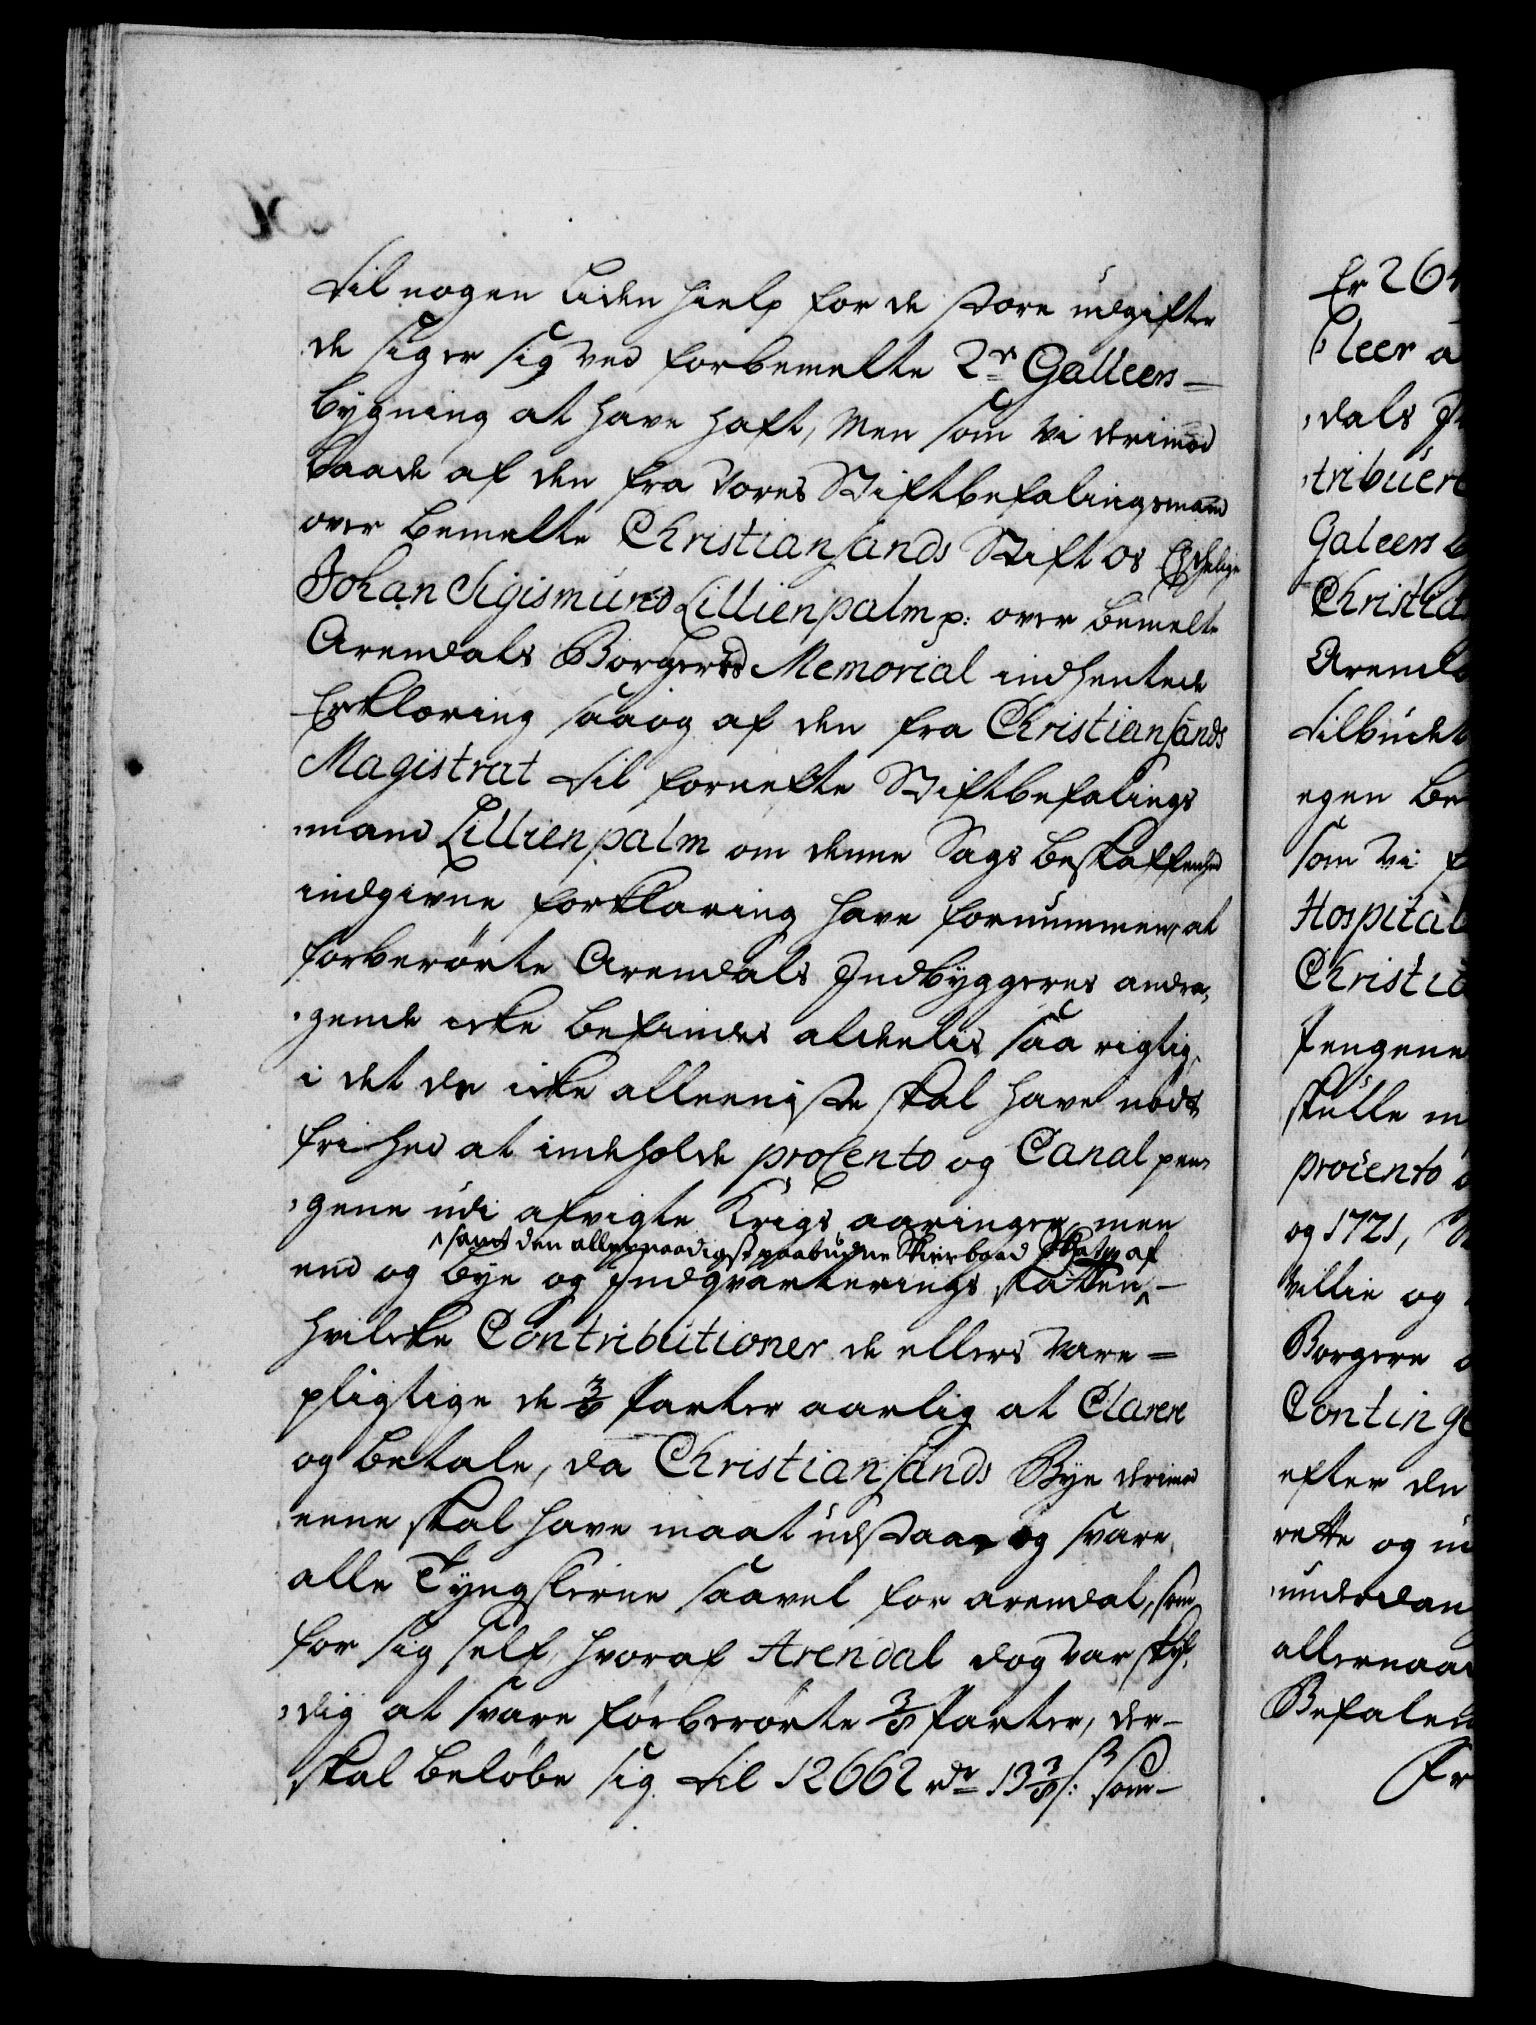 til nogen liden hielp for de store udgifter
de siger sig ved forbemelte 2de Galleers
bygning at have haft, Men som Vi derimod
baade af den fra Vores Stiftbefalingsmand
over bemelte Christiansands Stift Os Elskelig
Johan Sigismund Lillienpalm p: over bemelte
Arendals Borgeres Memorial indhentede
Erklæring saaog af den fra Christiansands
Magistrat til fornefte Stiftbefalings
mand Lillienpalm om denne Sags beskaffenhed
indgivne forklaring have fornummen, at
forberørte Arendals Indbyggeres andra
gende icke befindes aldelis saa rigtig,
i det de icke alleeniste skal have nødt
frihed at indeholde proCento og Canal pen
gene udi afvigte Krigs aaringer, men
samt den allernaadigst paabudne Skierbaad Skatten af
end og bye og Indqvarterings skatten
hvilcke Contributioner de ellers vare
pligtige de 3/8 Parter aarlig at Clarere
og betale, da Christiansands Bye derimod
eene skal have maat udstaae og svare
alle Tyngslerne saavel for arendal, som
for sig self, hvoraf Arendal dog var skyl
dig at svare forberørte 3/8 Parter, der
skal beløbe sig til 12662 rdr 13 3/8 s: som
Er 264
Gleer a
dals I
tribuere
Galeers b
Christia
Arenda
tilbudet
egen be
som Vi f
Hospital
Christia
Pengene
skulle m
procento
og 1721,
Villie og
Borgere
Continge
efter de
rette og
underdan
allernaa
Befalen
Fr